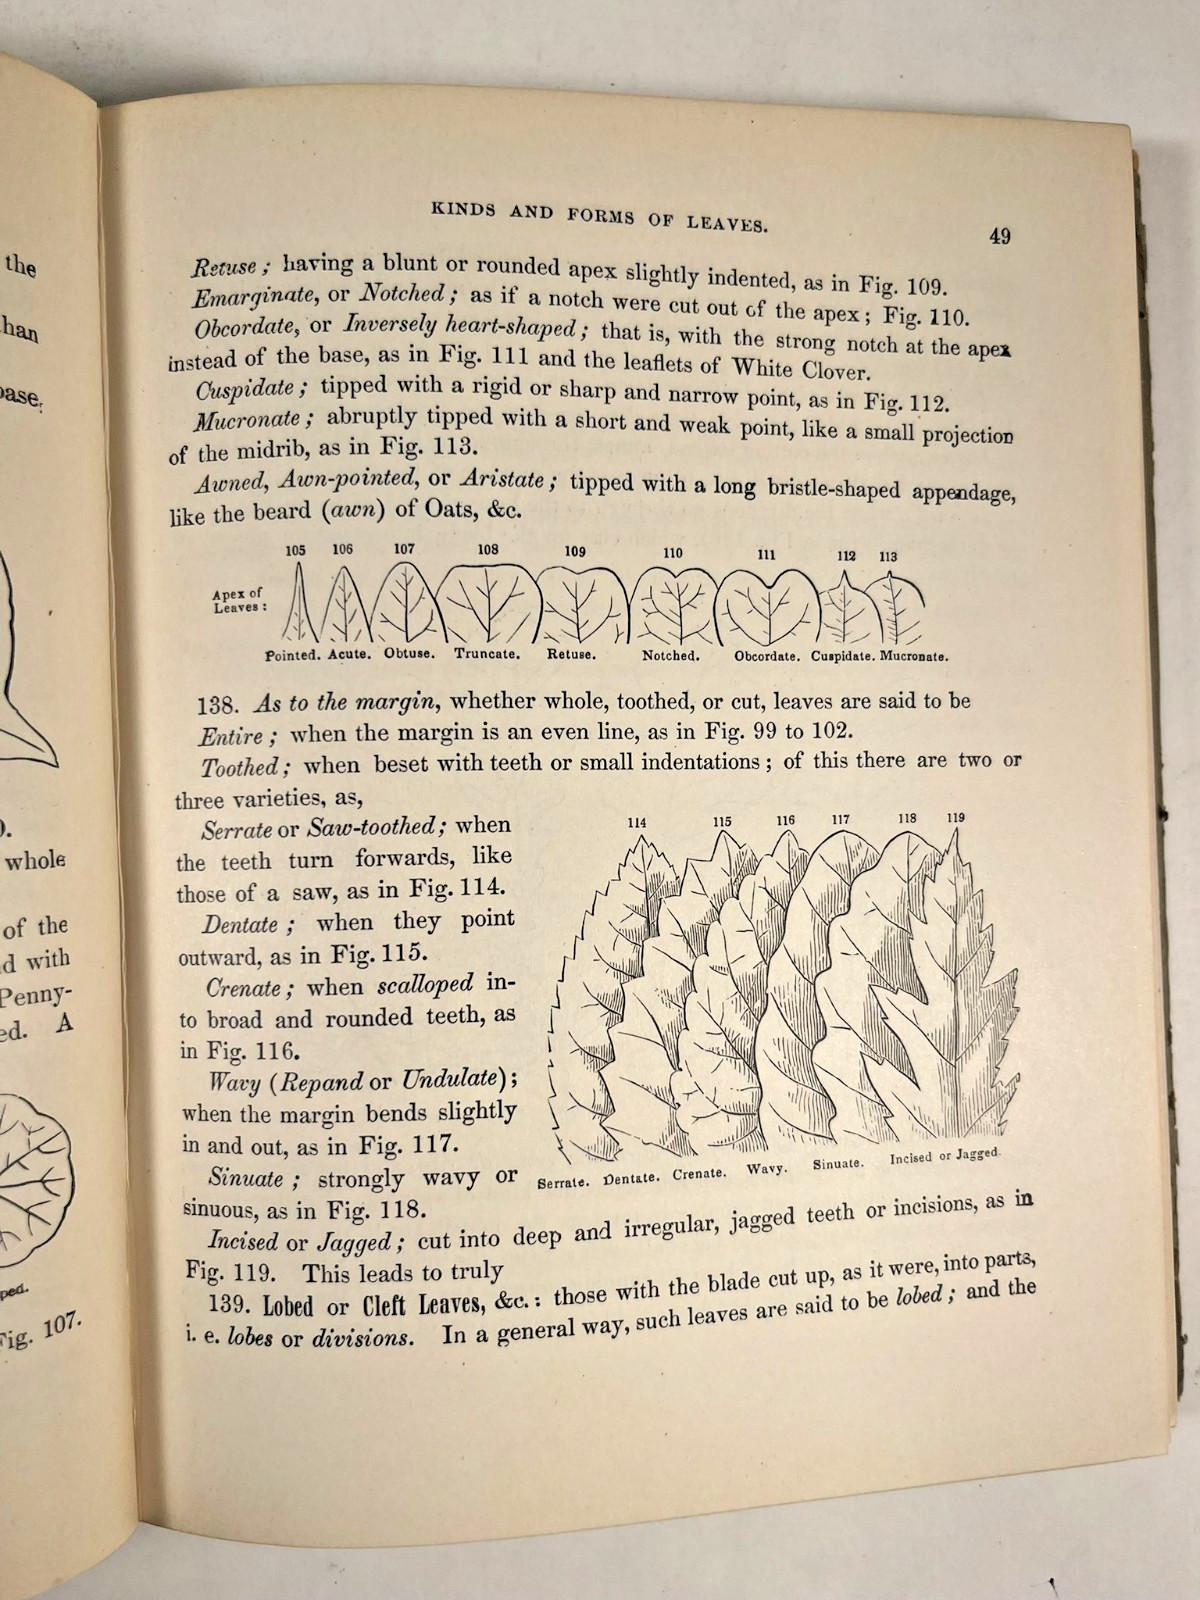 the
han
base,
0.
whole
of the
d with
Penny-
ed. A
ped.
Fig. 107.
KINDS AND FORMS OF LEAVES.
49
Retuse ; having a blunt or rounded apex slightly indented, as in Fig. 109.
Emarginate, or Notched ; as if a notch were cut out of the apex ; Fig. 110.
Obcordate, or Inversely heart-shaped ; that is, with the strong notch at the apex
instead of the base, as in Fig. 111 and the leaflets of White Clover.
Cuspidate ; tipped with a rigid or sharp and narrow point, as in Fig. 112.
Mucronate ; abruptly tipped with a short and weak point, like a small projection
of the midrib, as in Fig. 113.
Awned, Awn-pointed, or Aristate ; tipped with a long bristle-shaped appendage,
like the beard (awn) of Oats, &c.
105 106 107 108 109 110 111 112 113
Apex of
Leaves :
Pointed. Acute. Obtuse. Truncate. Retuse. Notched. Obcordate. Cuspidate. Mucronate.
138. As to the margin, whether whole, toothed, or cut, leaves are said to be
Entire ; when the margin is an even line, as in Fig. 99 to 102.
Toothed ; when beset with teeth or small indentations ; of this there are two or
three varieties, as,
Serrate or Saw-toothed ; when
the teeth turn forwards, like
those of a saw, as in Fig. 114.
Dentate ; when they point
outward, as in Fig. 115.
Crenate ; when scalloped in-
to broad and rounded teeth, as
in Fig. 116.
Wavy (Repand or Undulate) ;
when the margin bends slightly
in and out, as in Fig. 117.
Sinuate ; strongly wavy or
sinuous, as in Fig. 118.
114 115 116 117 118 119
Serrate. Dentate. Crenate. Wavy. Sinuate. Incised or Jagged
Incised or Jagged ; cut into deep and irregular, jagged teeth or incisions, as in
Fig. 119. This leads to truly
139. Lobed or Cleft Leaves, &c. : those with the blade cut up, as it were, into parts,
i. e. lobes or divisions. In a general way, such leaves are said to be lobed ; and the